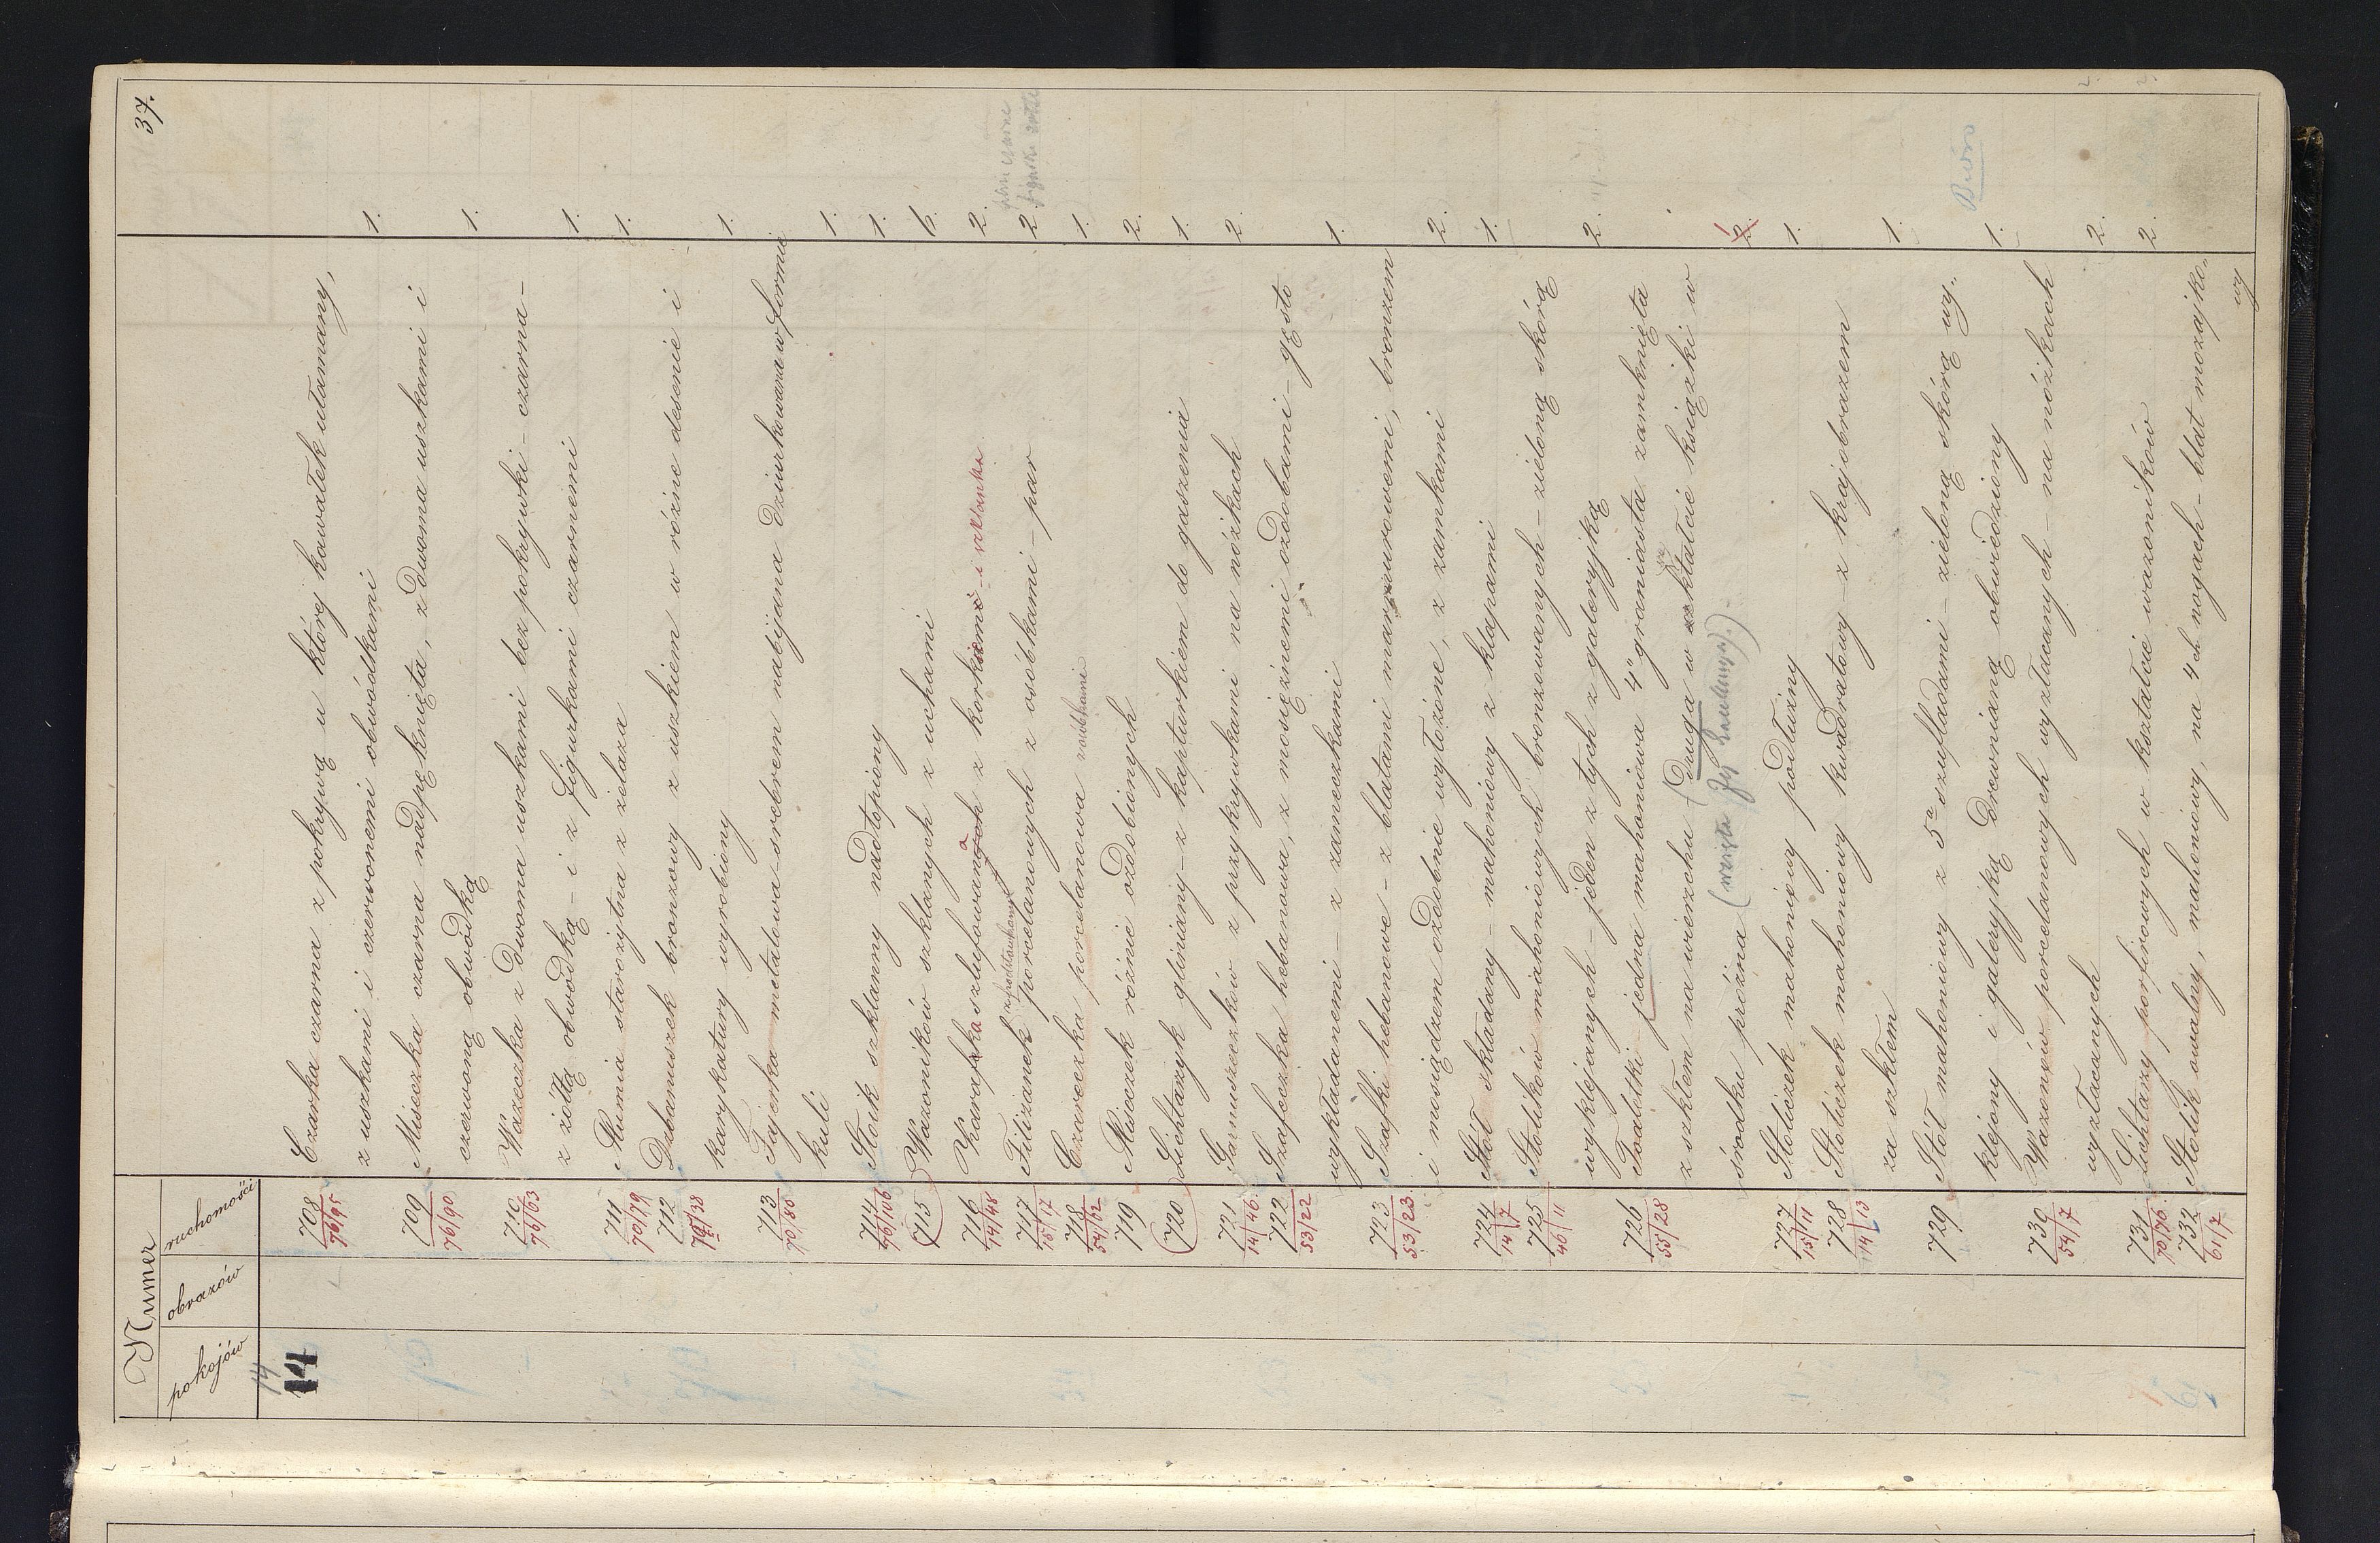 37.
Numer
pokojów obrazów ruchomości
14
14 708 Czarka czarna z pokrywą u której kawałek ułamany,
76/95 z uszkami i czerwonemi obwódkami 1.
709 Miseczka czarna nadpęknięta, z dwoma uszkami i
76/90 czerwoną obwódką 1.
710 Wazeczka z dwoma uszkami bez pokrywki - czarna -
76/63 z żółtą obwódką - i z figurkami czarnemi 1.
711 Mumia starożytna z żelaza 1.
70/79
712 Dzbanuszek bronzowy z uszkiem w różne desenie i
70/38 karykatury wyrobiony 1.
713 Fajerka metalowa srebrem nabijana dziurkowana w formie
70/80 kuli 1.
714 Słoik szklanny nadtopiony 1.
76/106
715 Wazoników szklanych z uchami 6.
716 Karafka szlufowana z korkiem i szklanka 2.
14/48
717 Filiżanek porcelanowych z osóbkami - par 2.
15/17
718 Czareczka porcelanowa z osóbkami 1.
54/62
719 Muszek różnie ozdobionych 2.
720 Lichtarzyk gliniany - z kapturkiem do gaszenia 1.
721 Garnuszeczków z przykrywkami na nóżkach 2.
14/46
722 Szafeczka hebanowa, z mosiężnemi ozdobami - gęsto
53/22 wykładanemi - z zameczkami 1.
723 Szafki hebanowe - z blatami marmurowemi, bronzem
53/23 i mosiądzem ozdobnie wyłożone, z zamkami 2.
724 Stół składany - mahoniowy z klapami 1.
14/7
725 Stolików mahoniowych bronzowanych - zieloną skórą
46/11 wyklejanych - jeden z tych z galeryjką 2.
726 Toaletki - jedna mahoniowa 4ro graniasta zamknięta
55/28 z szkłem na wierzchu (druga w kształcie książki w
środku próżna 1
727 Stoliczek mahoniowy podłużny 1.
15/11
728 Stoliczek mahoniowy kwadratowy - z krajobrazem
14/13 za szkłem 1.
729 Stół mahoniowy z 5a szufladami - zieloną skórą wy-
klejony i galeryjką drewnianą obwiedziony 1. Biuro
730 Wazonów porcelanowych wyzłacanych - na nóżkach
54/7 wyzłacanych 2.
731 Lichtarzy porfirowych w kształcie wazoników 2.
70/76
732 Stolik owalny, mahoniowy, na 4ch nogach - blat mozajko-
61/7 wy